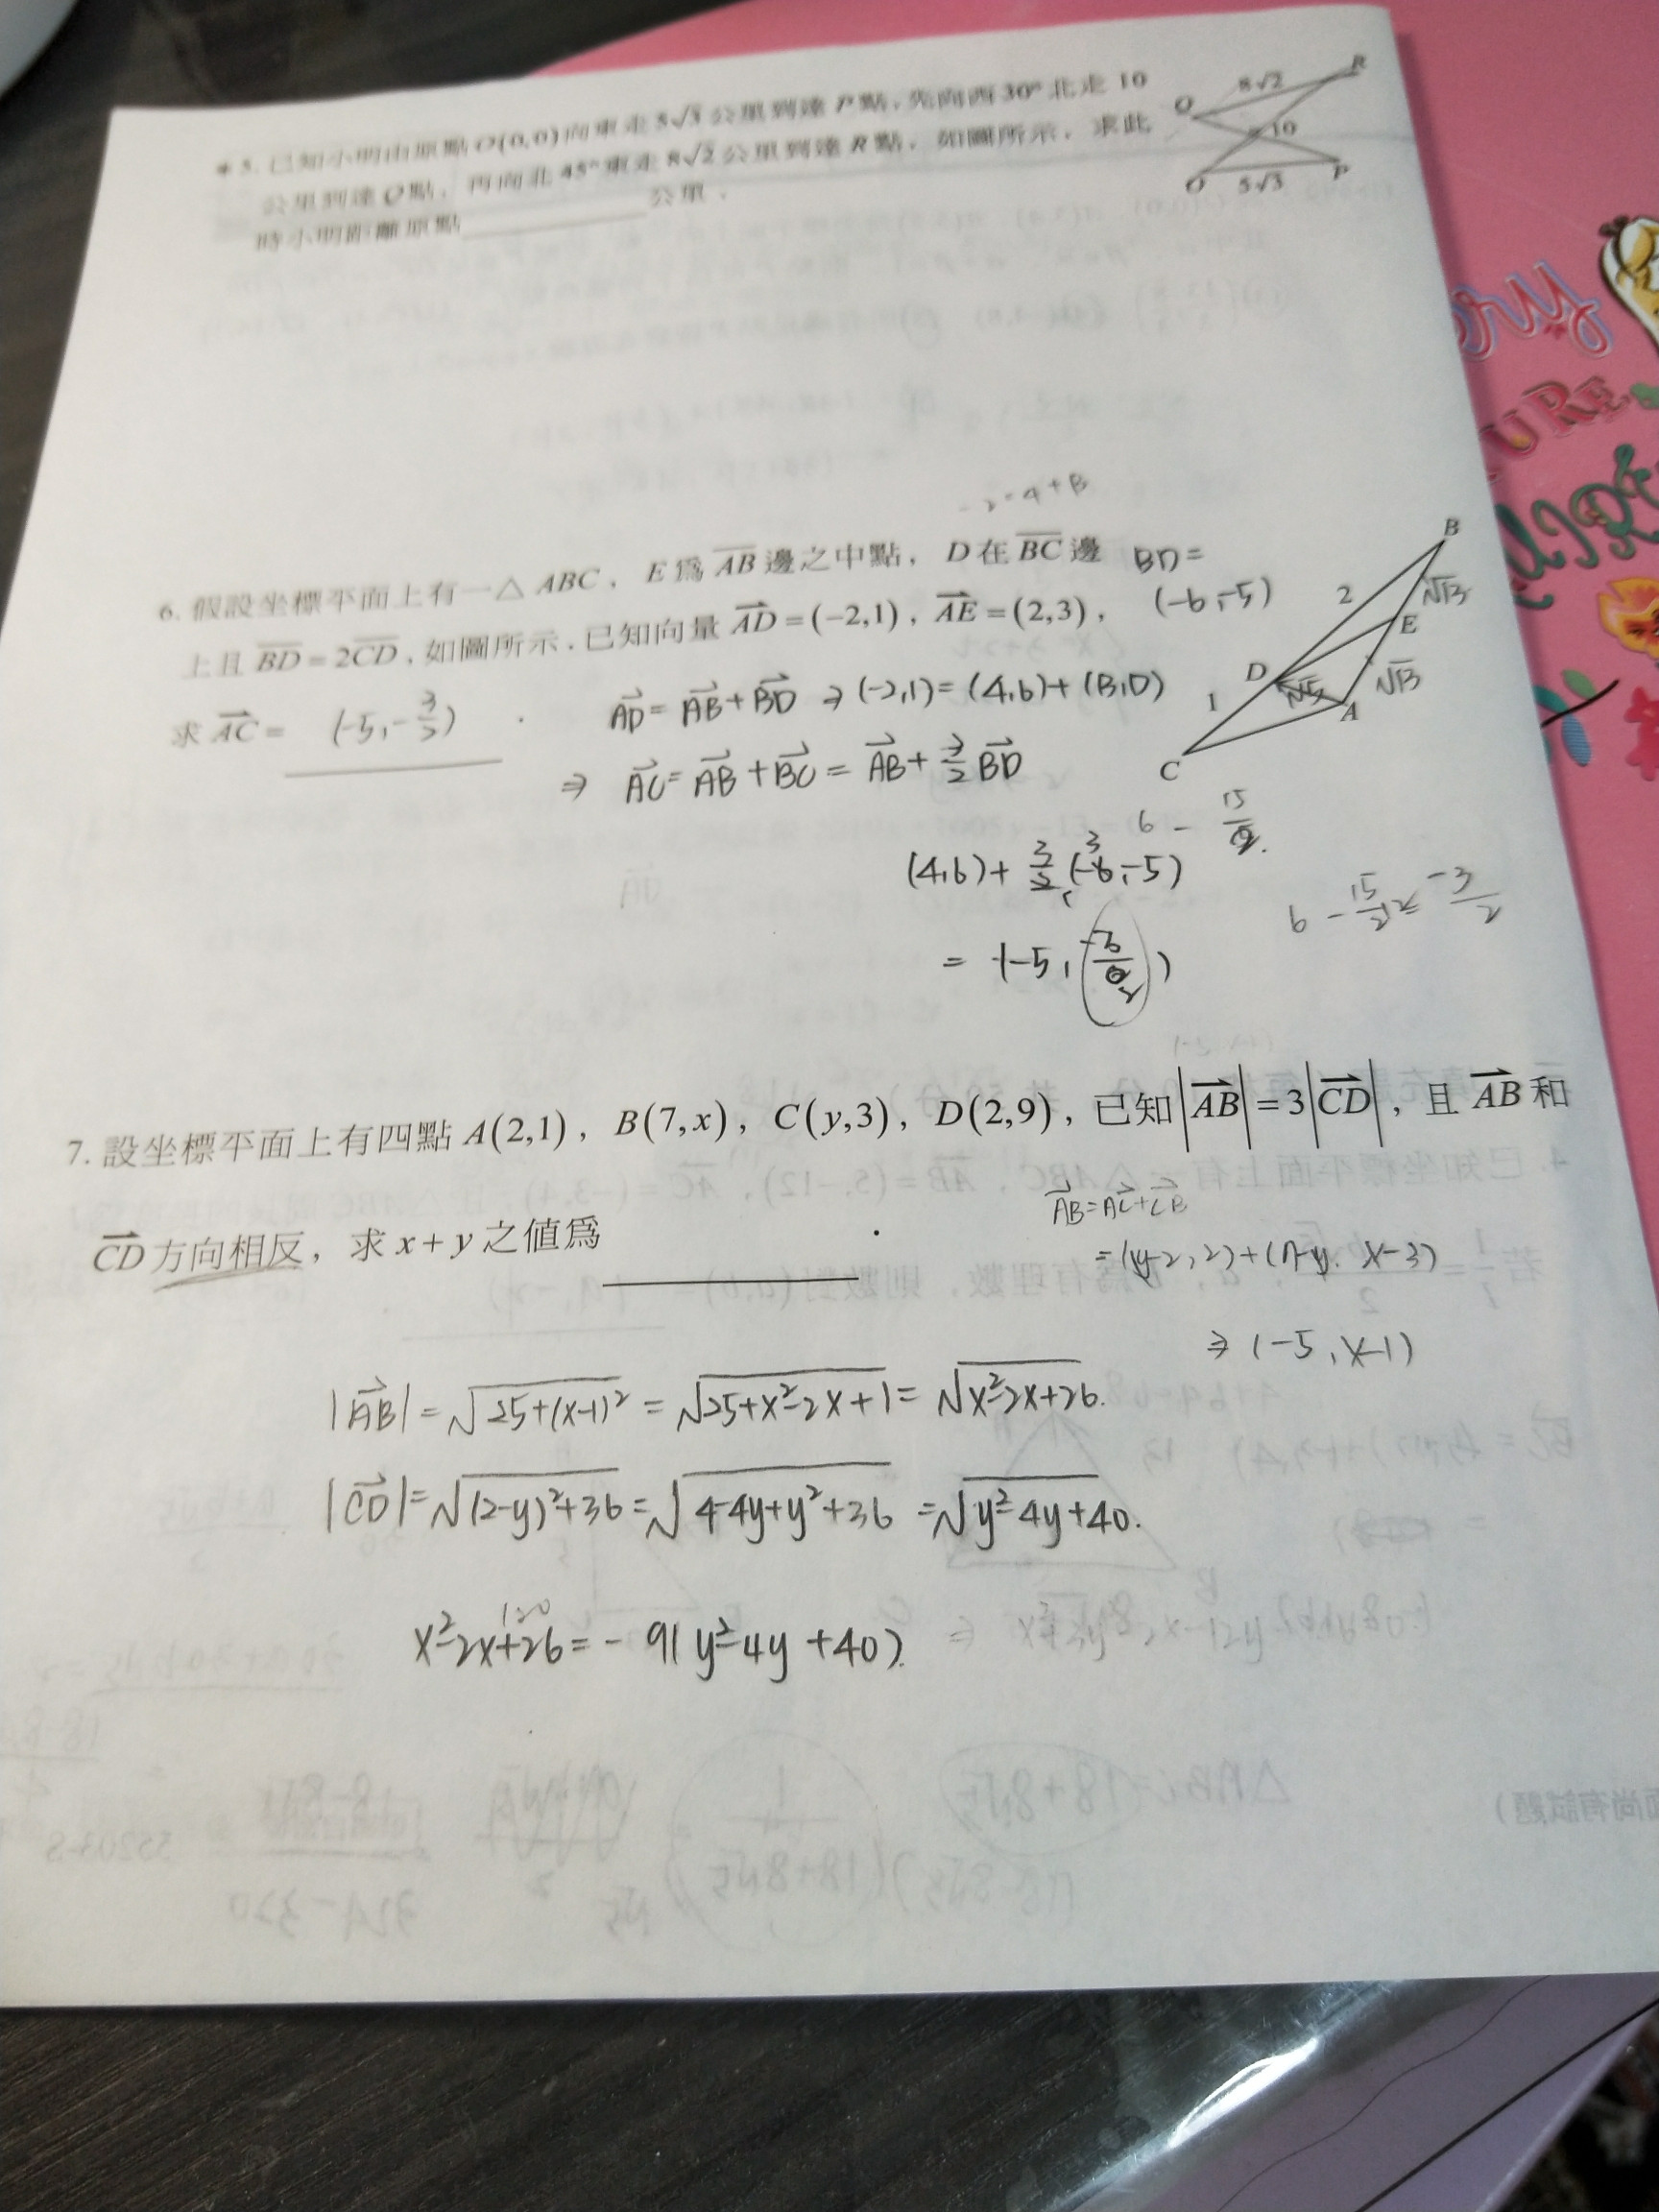 * 5. 已知小明由原點 O(0,0) 向東走 5√3 公里到達 P 點，先向西 30° 北走 10
公里到達 Q 點，再向北 45° 東走 8√2 公里到達 R 點，如圖所示，求此
時小明距離原點 公里．
8√2
R
Q
10
O
5√3
P
6. 假設坐標平面上有一△ABC，E為AB邊之中點，D在BC邊
上且BD=2CD，如圖所示．已知向量AD=(-2,1)，AE=(2,3)，
求AC= (-5,-3/2)．
BD=
(-6,-5)
AD=AB+BD ⇒ (-2,1)=(4,6)+(B,D)
⇒ AC=AB+BC=AB+3/2 BD
6 - 15/2
(4,6)+3/2(-6,-5)
6 - 15/2 = -3/2
= (-5, -3/2)
B
2
√13
E
D
√5
√13
A
1
C
7. 設坐標平面上有四點A(2,1)，B(7,x)，C(y,3)，D(2,9)，已知|AB|=3|CD|，且AB和
CD方向相反，求x+y之值為 ．
AB=AC+CB
=(y-2,2)+(7-y, x-3)
⇒ (-5, x-1)
|AB|=√25+(x-1)²=√25+x²-2x+1=√x²-2x+26.
|CD|=√(2-y)²+36=√4-4y+y²+36=√y²-4y+40.
x²-2x+26=-9(y²-4y+40)